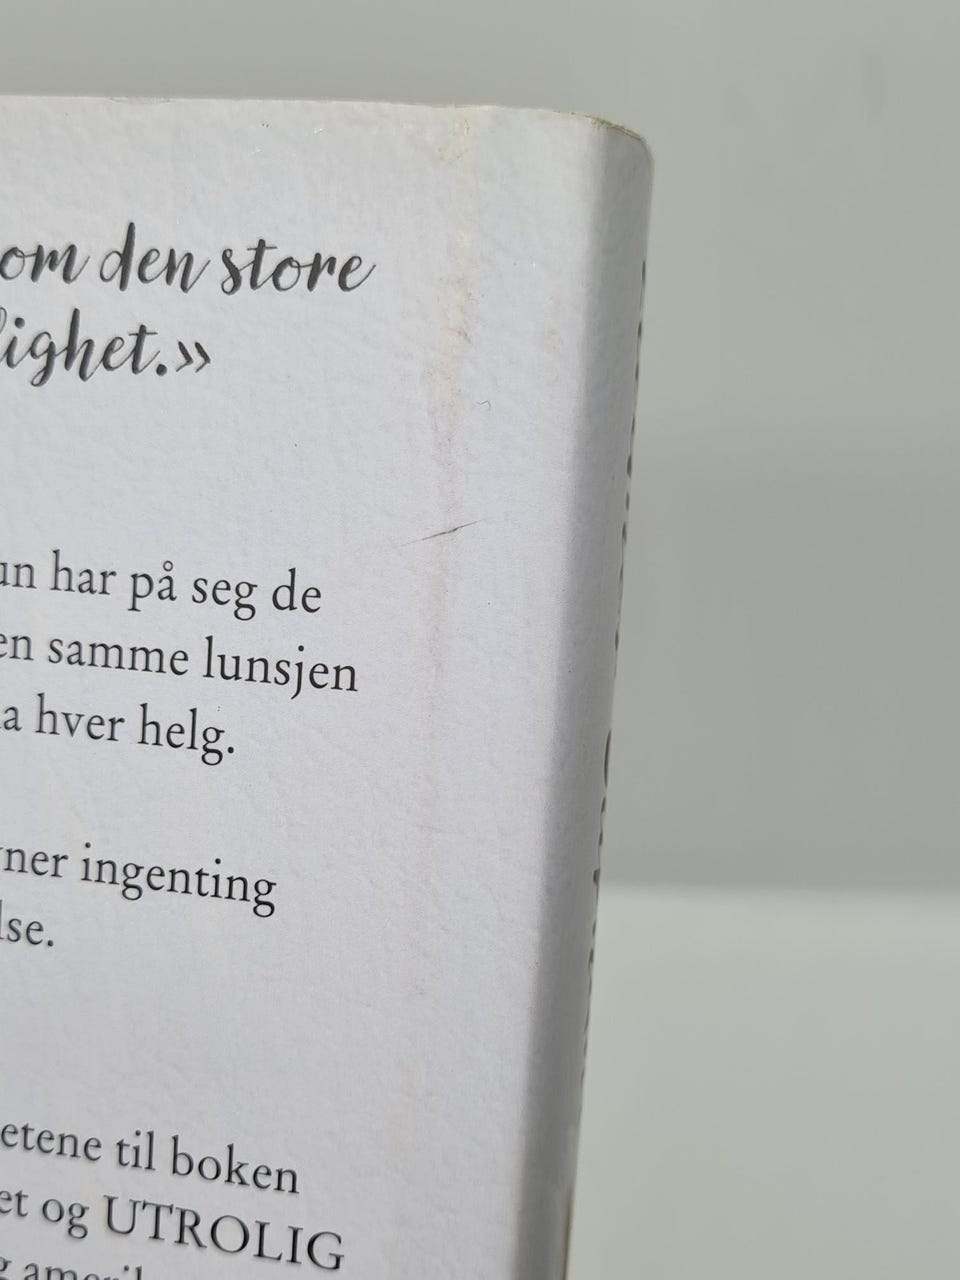 om den store
lighet.»
har på seg de
en samme lunsjen
a hver helg.
ner ingenting
lse.
etene til boken
et og UTROLIG